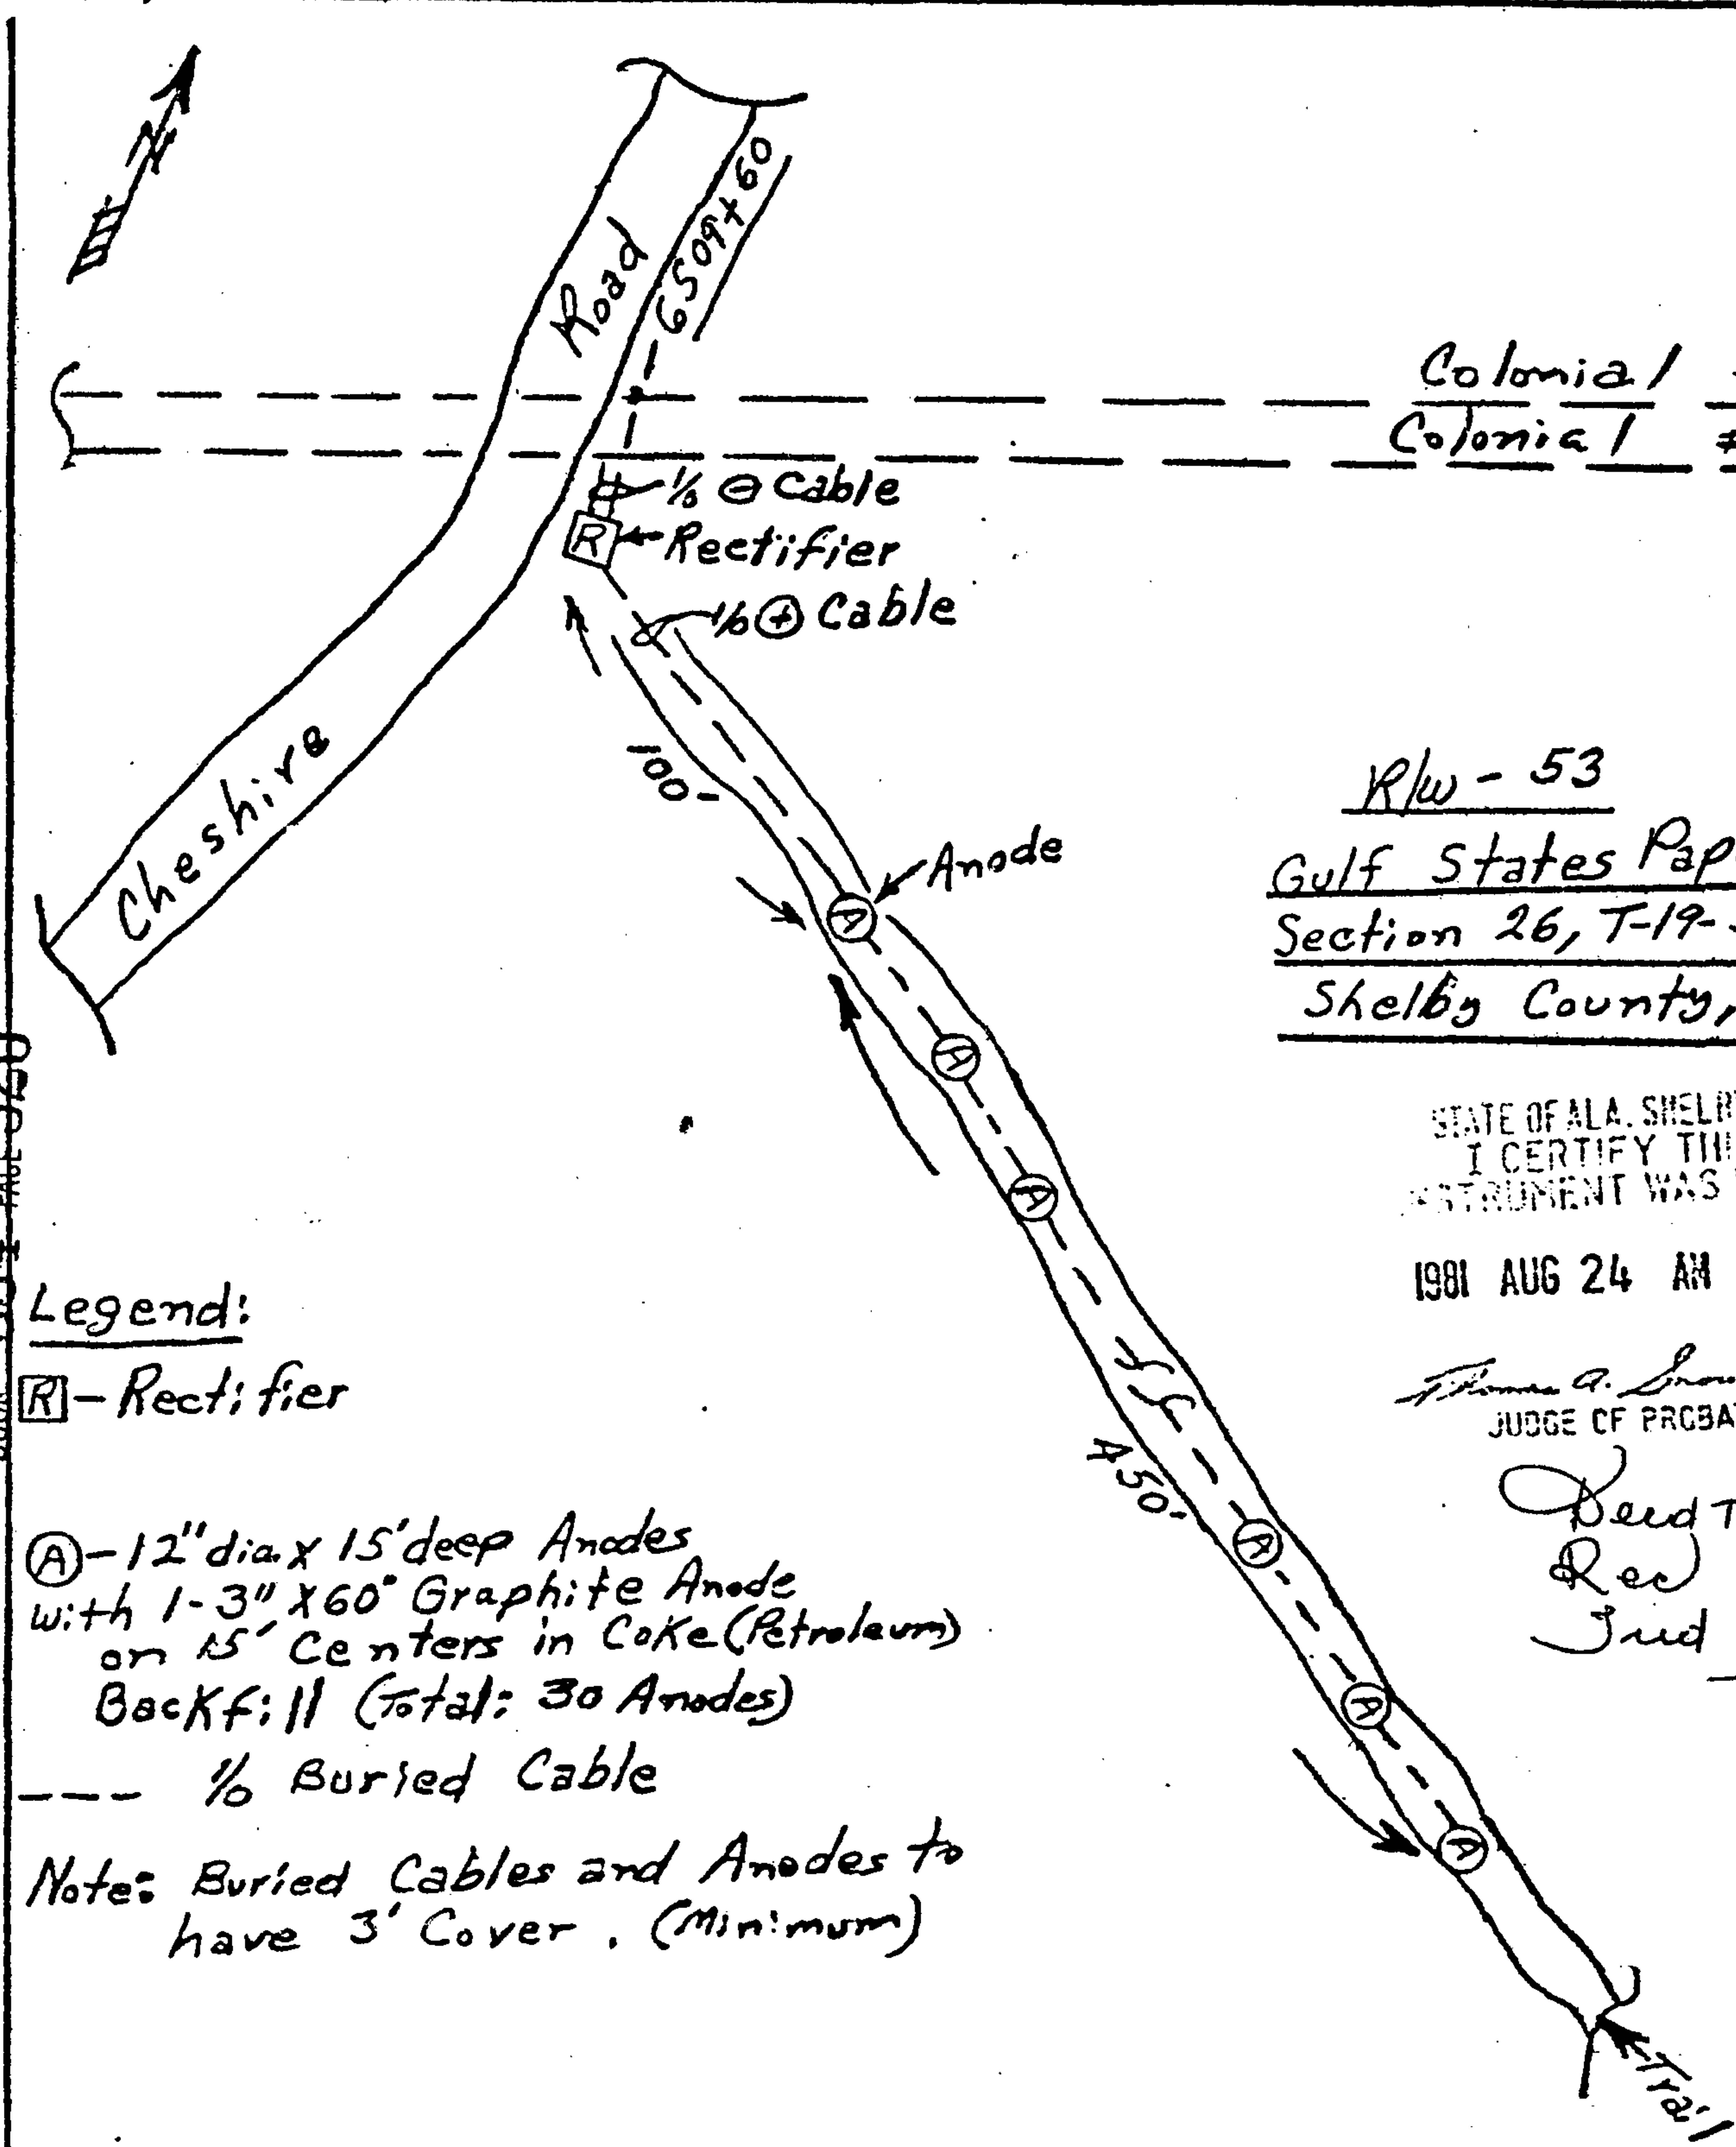 N
Road
6509+60
Colonial
Colonial #
1/0 ⊖ Cable
R
Rectifier
1/0 ⊕ Cable
Cheshire
100'
Anode
A
A
A
R/W - 53
Gulf States Pap
Section 26, T-19-
Shelby County,
STATE OF ALA. SHELBY
I CERTIFY THI
INSTRUMENT WAS
1981 AUG 24 AM
Thomas A. Snow
JUDGE OF PROBAT
Deed T
Rec
Ind
450'
A
A
A
Trail
PAGE
Legend:
R - Rectifier
A - 12" dia. x 15' deep Anodes
with 1-3" x 60" Graphite Anode
on 15' Centers in Coke (Petroleum)
Backfill (Total: 30 Anodes)
--- 1/0 Buried Cable
Note: Buried Cables and Anodes to
have 3' Cover. (Minimum)